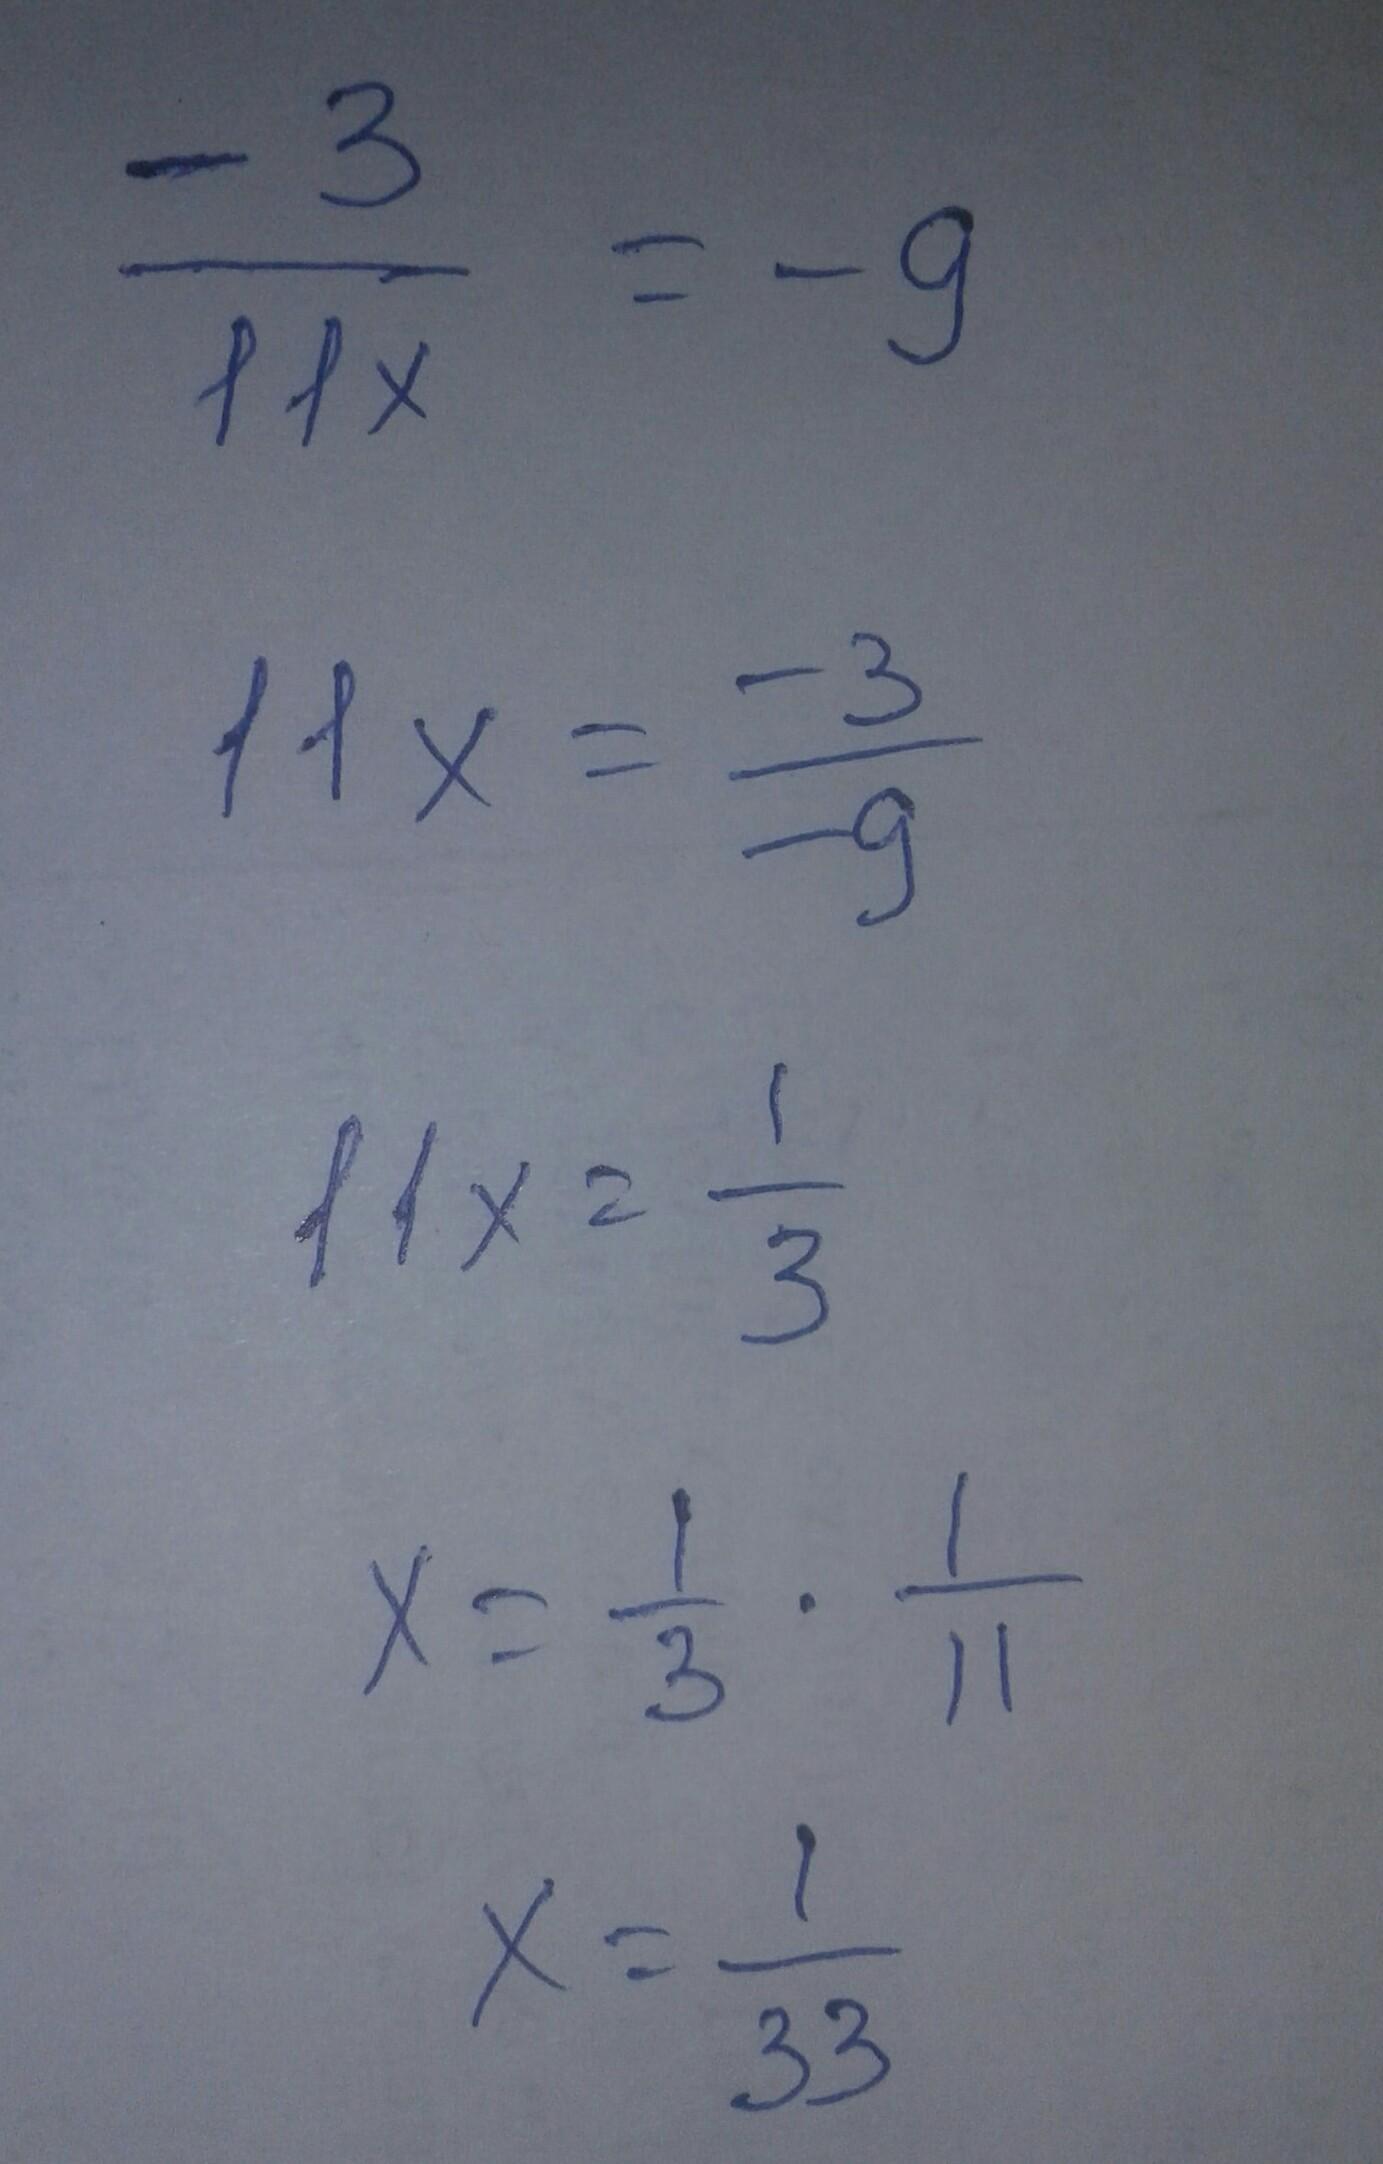 -3/11x = -9
11x = -3/-9
11x = 1/3
x = 1/3 · 1/11
x = 1/33